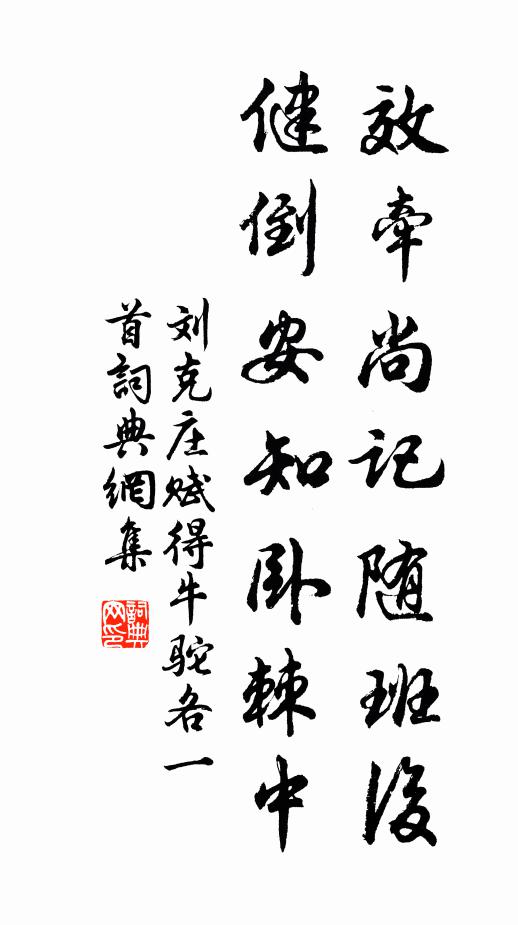 效牵尚记随班后
健倒安知卧棘中
刘克庄赋得牛驼各一
首詞典網集
詞典
网印